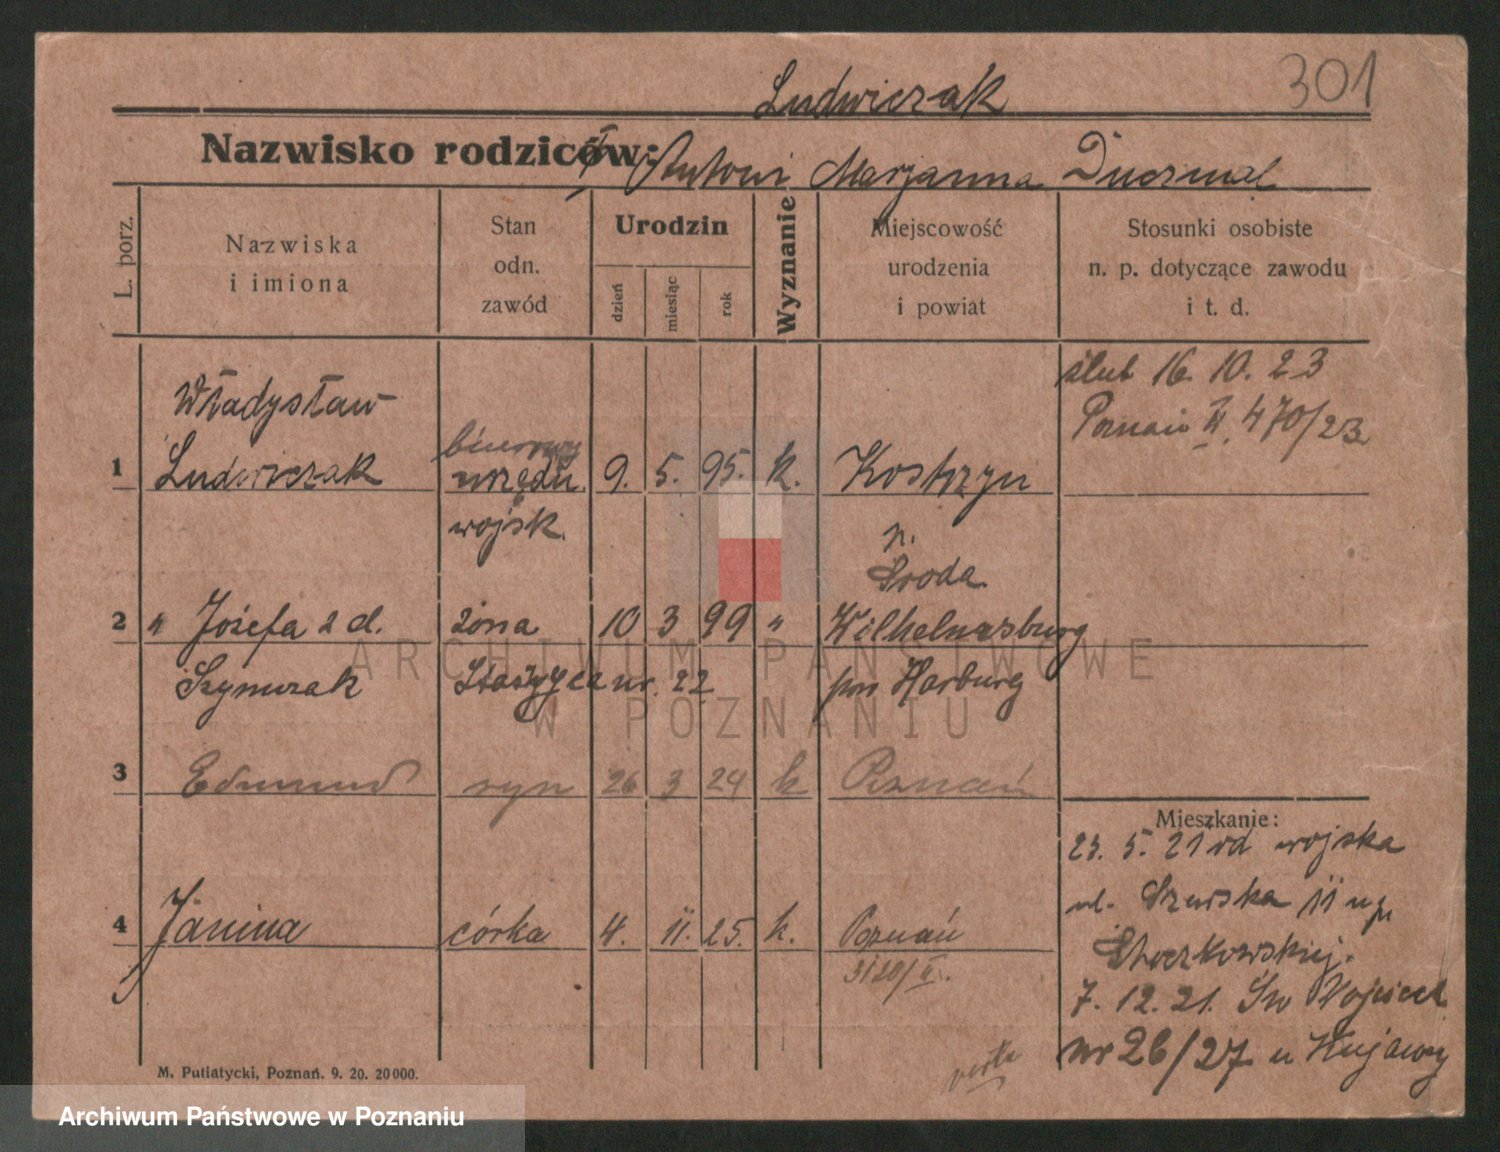 301
Ludwiczak
Nazwisko rodziców: Antoni Marjanna Duczmal
L. porz.
Nazwiska
i imiona
Stan
odn.
zawód
Urodzin
dzień
miesiąc
rok
Wyznanie
Miejscowość
urodzenia
i powiat
Stosunki osobiste
n. p. dotyczące zawodu
i t. d.
ślub 16. 10. 23
Poznań II. 470/23
Władysław
biurowy
1 Ludwiczak urzędn. 9. 5. 95. k. Kostrzyn
wojsk.
p.
Środa
2 " Józefa 2 d. żona 10 3 99 " Wilhelmsburg
Szymczak nr. 22 pow Harburg
3 Edmund syn 26 3 24 k Poznań
Mieszkanie:
23. 5. 21 od wojska
ul. Szewska 11 u p.
4 Janina córka 4. 11. 25. k. Poznań
3120/II.
7. 12. 21. Św Wojciech
nr 26/27 u Kujawy
verte
M. Putiatycki, Poznań. 9. 20. 20000.
ARCHIWUM PAŃSTWOWE
W POZNANIU
Archiwum Państwowe w Poznaniu